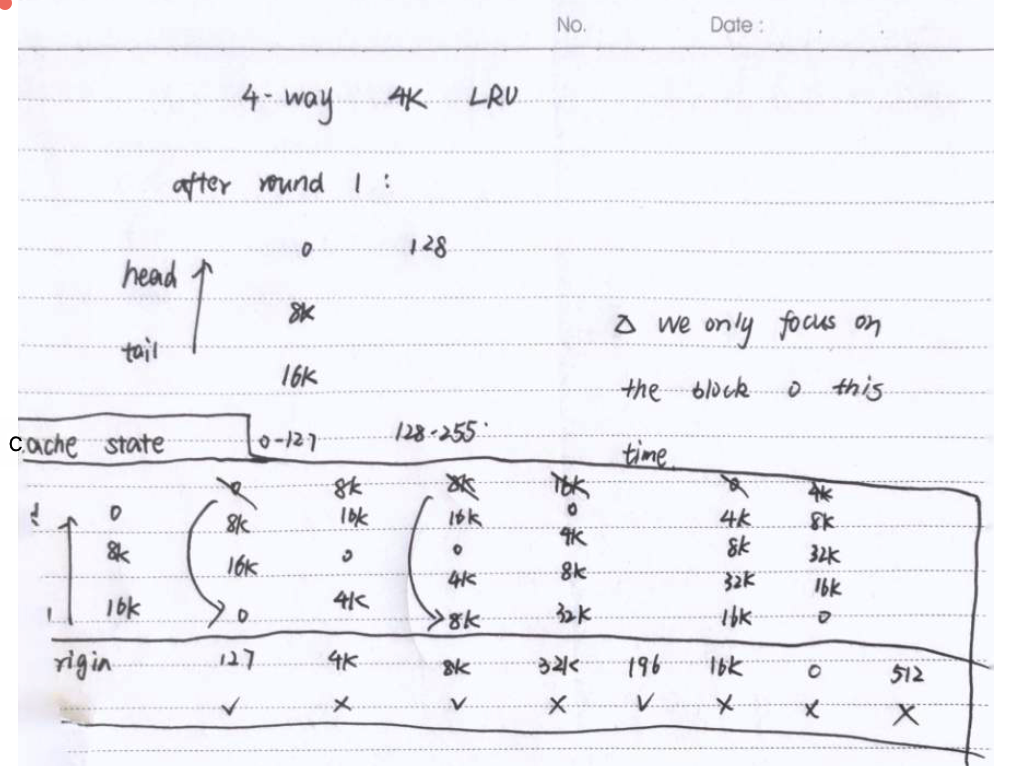 No. Date :
4-way 4K LRU
after round 1 :
0 128
head
8K
△ we only focus on
tail
16K
the block 0 this
Cache state 0-127 128-255
time
0 8K 8K 16K 0 4K
0 8K 16K 16K 0 4K 8K
8K 16K 0 0 4K 8K 32K
4K 4K 8K 32K 16K
16K 0 8K 32K 16K 0
rigin 127 4K 8K 32K 196 16K 0 512
✓ × ✓ × ✓ × × ×